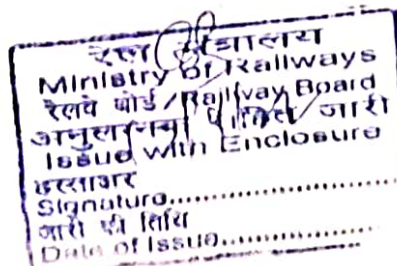 रेल मंत्रालय
Ministry of Railways
रेलवे बोर्ड / Railway Board
जारी
Issue with Enclosure
हस्ताक्षर
Signature..................
जारी की तिथि
Date of Issue..............